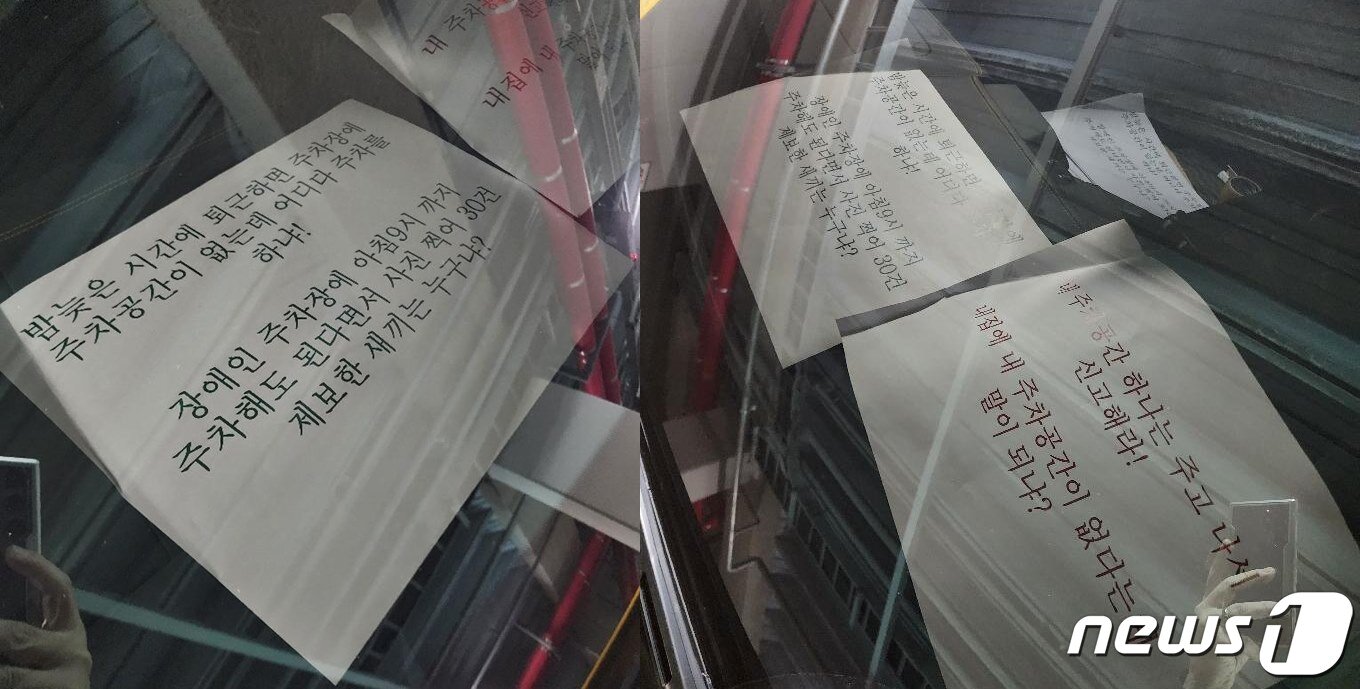 밤늦은 시간에 퇴근하면 주차장에
주차공간이 없는데 어디다 주차를
하냐!
장애인 주차장에 아침9시 까지
주차해도 된다면서 사진 찍어 30건
제보한 새끼는 누구냐?
내 주차공
내집에 내 주차
밤늦은 시간에 퇴근하면
주차공간이 없는데 어디다
하냐!
장애인 주차장에 아침9시 까지
주차해도 된다면서 사진 찍어 30건
제보한 새끼는 누구냐?
내 주차공간 하나는 주고 나서
신고해라!
내집에 내 주차공간이 없다는
말이 되냐?
news1